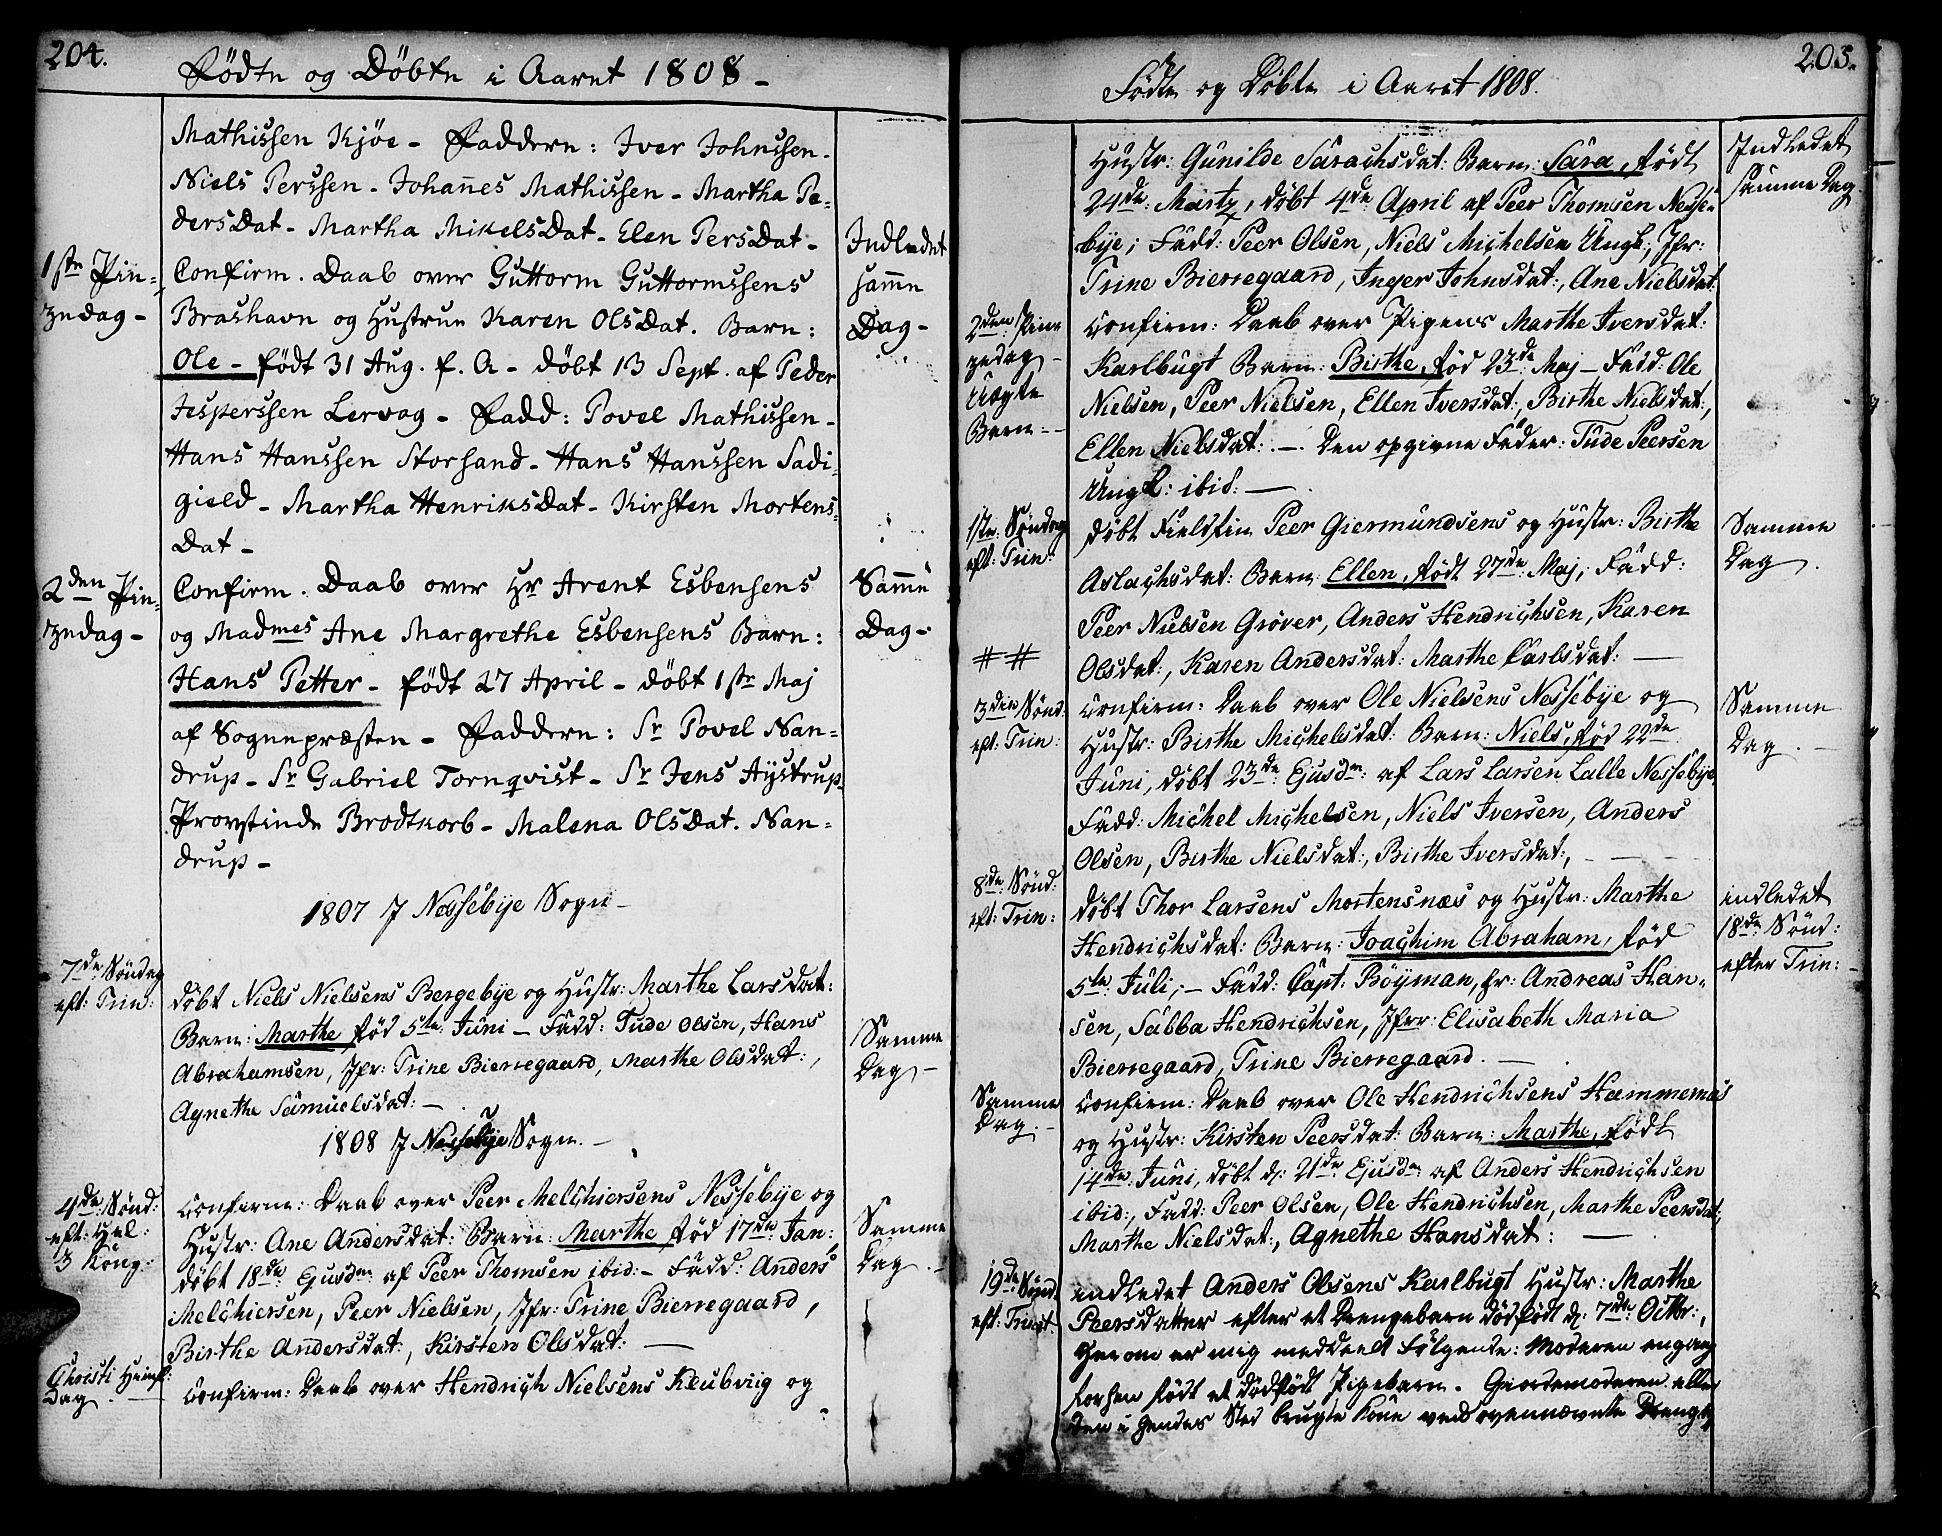 204.
Födte og Döbte i Aaret 1808 -
Mathissen Kjöe - Faddern: Iver Johnssen -
Niels Perssen - Johannes Mathissen - Martha Pe-
dersDat - Martha MikelsDat - Elen PersDat -
1ste Pin-
zedag -
Confirm. Daab over Guttorm Guttormssens
Brashavn og Hustrue Karen OlsDat. Barn:
Ole - födt 31 Aug. f. A - döbt 13 Sept. af Peder
Jesperssen Lervog - Fadd: Povel Mathissen -
Hans Hanssen Storsand - Hans Hanssen Sadi-
gield - Martha HenriksDat - Kirsten Mortens-
Dat -
Indledet
samme
Dag -
2den Pin-
zedag -
Confirm. Daab over Hr Arent Esbensens
og Madmes Ane Margrethe Esbensens Barn:
Hans Petter - födt 27 April - döbt 1ste Maj
af Sognepræsten - Faddern: Sr Povel Nan-
drup - Sr Gabriel Tornqvist - Sr Jens Aystrup -
Provstinde Brodtkorb - Malena OlsDat. Nan-
drup -
Samme
Dag -
1807 J Nessebye Sogn -
7de Söndag
eft: Trin:
döbt Niels Nielsens Bergebye og Hustr: Marthe Larsdat:
Barn: Marthe, föd 5te Juni - Fadd: Tude Olsen, Hans
Abrahamsen, Jfr: Trine Bierregaard, Marthe Olsdat:,
Agnethe Samuelsdat: -
Samme
Dag -
1808 J Nessebye Sogn. -
4de Sönd:
eft: Hel:
3 Kong:
Confirm: Daab over Peer Melchiersens Nessebye og
Hustr: Ane Andersdat: Barn: Marthe, föd 17de Jan:
döbt 18de Ejusdm: af Peer Thomsen ibid: - Fadd: Anders
Melchiersen, Peer Nielsen, Jfr: Trine Bierregaard,
Birthe Andersdat:, Kirsten Olsdat: -
Samme
Dag. -
Christi Himf:
Dag. -
Confirm: Daab over Hendrich Nielsens Klubviig og
205.
Födte og Döbte i Aaret 1808.
Hustr: Gunilde Sarachsdat: Barn: Sara, födt
24de Marty, döbt 4de April af Peer Thomsen Nesse-
bye; Fadd: Peer Olsen, Niels Michelsen Ungk:, Jfr:
Trine Bierregaard, Inger Johnsdat:, Ane Nielsdat:
Indledet
samme Dag
2den Pin-
zedag -
Uægte
Barn -
Confirm: Daab over Pigens Marthe Iversdat:
Karlbugt Barn: Birthe, föd 23de Maj - Fadd: Ole
Nielsen, Peer Nielsen, Ellen Iversdat:, Birthe Nielsdat:,
Ellen Nielsdat: - Den opgivne Fader: Tude Peersen
Ungk: ibid: -
1ste Söndag
eft: Trin:
döbt Fieldfin Peer Giermundsens og Hustr: Birthe
Aslachsdat: Barn: Ellen, födt 27de Maj, Fadd:
Peer Nielsen Gröver, Anders Hendrichsen, Karen
Olsdat:, Karen Andersdat: Marthe Carlsdat: -
Samme
Dag.
# #
3die Sönd:
eft: Trin:
Confirm: Daab over Ole Nielsens Nessebye og
Hustr: Birthe Michelsdat: Barn: Niels, föd 22de
Juni, döbt 23de Ejusdm: af Lars Larsen Lalle Nessebye,
Fadd: Michel Michelsen, Niels Iversen, Anders
Olsen, Birthe Nielsdat:, Birthe Iversdat:, -
Samme
Dag. -
8de Sönd:
eft: Trin:
döbt Thor Larsens Mortensnæs og Hustr: Marthe
Hendrichsdat: Barn: Joachim Abraham, föd
5te Juli; - Fadd: Capt: Böyman, hr: Andreas Han-
sen, Sabba Hendrichsen, Jfrr: Elisabeth Maria
Bierregaard, Trine Bierregaard. -
indledet
18de Sönd:
efter Trin: -
Samme
Dag. -
Confirm: Daab over Ole Hendrichsens Hammernæs
og Hustr: Kirsten Peersdat: Barn: Marthe, födt
14de Juni, döbt d: 21de Ejusdm af Anders Hendrichsen
ibid:, Fadd: Peer Olsen, Ole Hendrichsen, Marthe Peersdat:,
Marthe Nielsdat:, Agnethe Hansdat: -
19de Sönd:
eft: Trinit:
indledet Anders Olsens Karlbugt Hustr: Marthe
Peersdatter efter et Drengebarn dödfödt d: 7de Octbr:,
herom er mig meddeelt Fölgende: Moderen engang
forhen födt et dödfödt Pigebarn. Giordemoderen eller
den i hendes Sted brugte Kone ved ovennævnte Drenge-